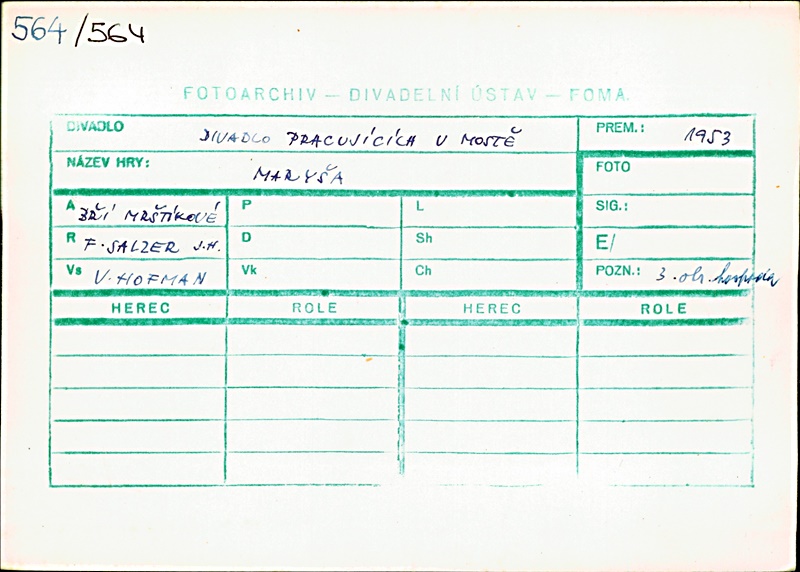 564/564
FOTOARCHIV — DIVADELNÍ ÚSTAV — FOMA
DIVADLO DIVADLO PRACUJÍCÍCH V MOSTĚ PREM.: 1953
NÁZEV HRY: MARYŠA FOTO
A BŘÍ MRŠTÍKOVÉ P L SIG.:
R F. SALZER J.H. D Sh E/
Vs V. HOFMAN Vk Ch POZN.: 3. obr. hospoda
HEREC ROLE HEREC ROLE